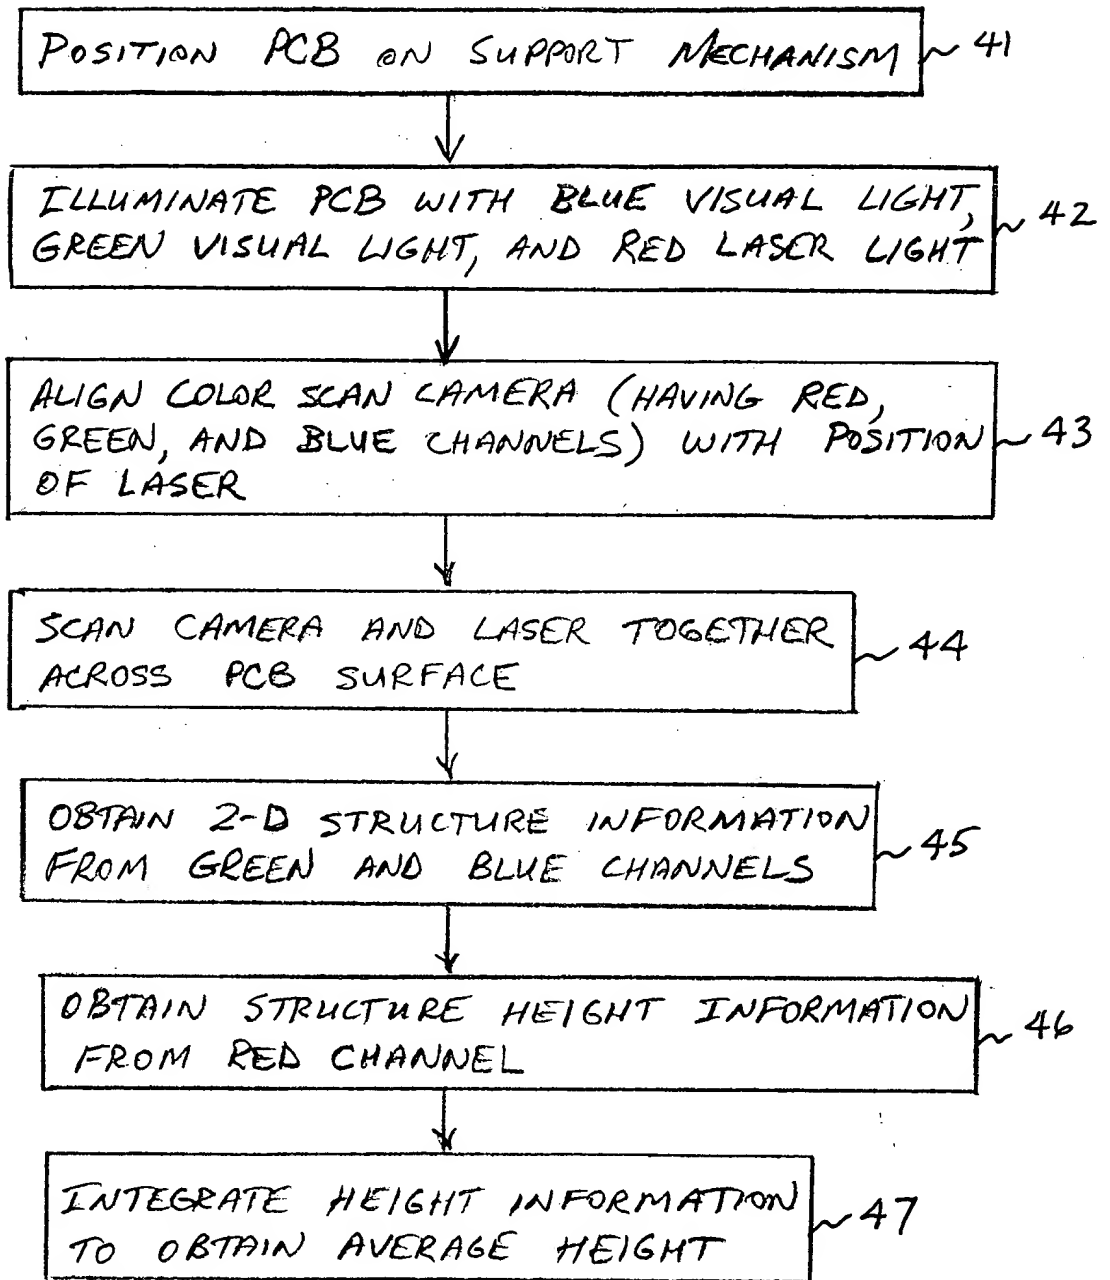 POSITION PCB ON SUPPORT MECHANISM 41
ILLUMINATE PCB WITH BLUE VISUAL LIGHT,
GREEN VISUAL LIGHT, AND RED LASER LIGHT
42
ALIGN COLOR SCAN CAMERA (HAVING RED,
GREEN, AND BLUE CHANNELS) WITH POSITION
OF LASER
43
SCAN CAMERA AND LASER TOGETHER
ACROSS PCB SURFACE
44
OBTAIN 2-D STRUCTURE INFORMATION
FROM GREEN AND BLUE CHANNELS
45
OBTAIN STRUCTURE HEIGHT INFORMATION
FROM RED CHANNEL
46
INTEGRATE HEIGHT INFORMATION
TO OBTAIN AVERAGE HEIGHT
47